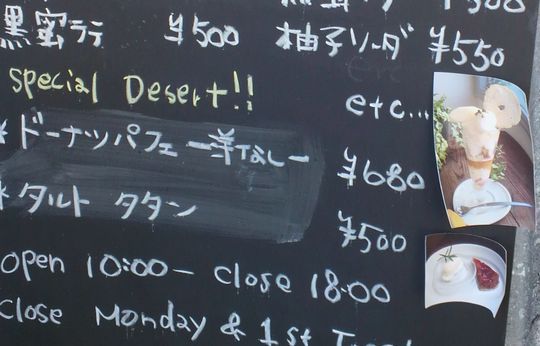 黒蜜ラテ ¥500 柚子ソーダ ¥550
Special Desert!! etc...
* ドーナツパフェ ー洋なしー ¥680
* タルト タタン ¥500
open 10:00 - close 18:00
close Monday & 1st